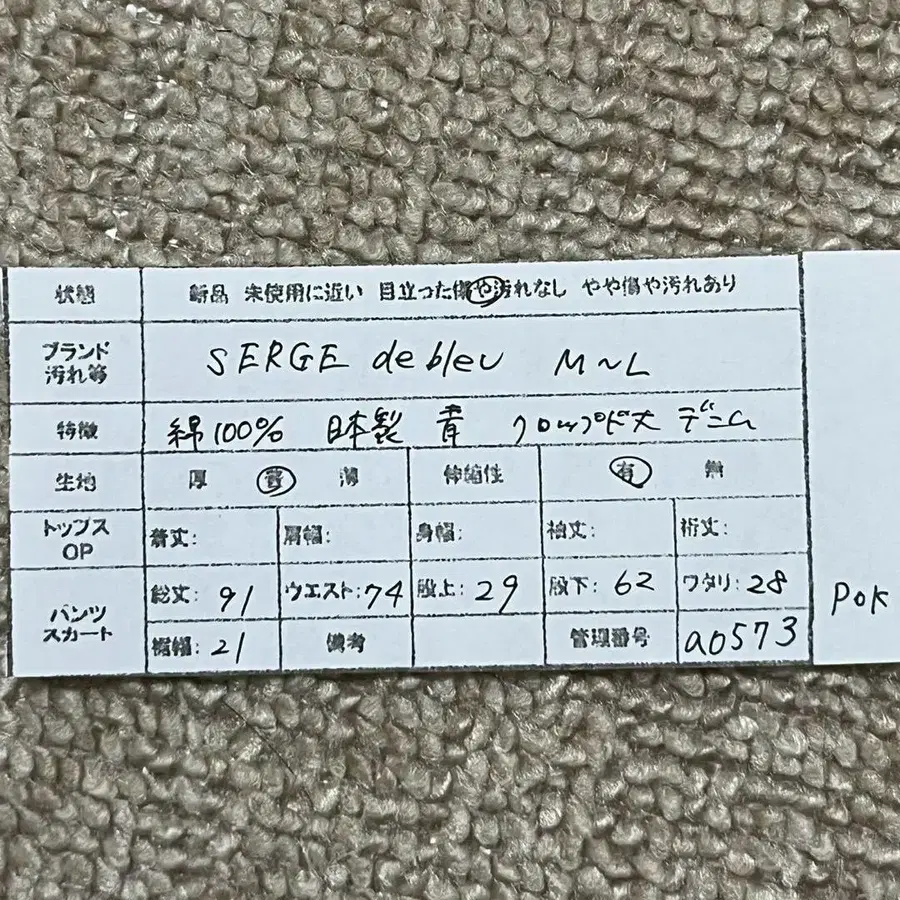 状態 新品 未使用に近い 目立った傷や汚れなし やや傷や汚れあり
ブランド
汚れ等
SERGE de bleu M~L
特徴 綿100% 日本製 青 クロップド丈 デニム
生地 厚 普 薄 伸縮性 有 無
トップス
OP
着丈: 肩幅: 身幅: 袖丈: 裄丈:
パンツ
スカート
総丈: 91 ウエスト: 74 股上: 29 股下: 62 ワタリ: 28
裾幅: 21 備考 管理番号 a0573
POK